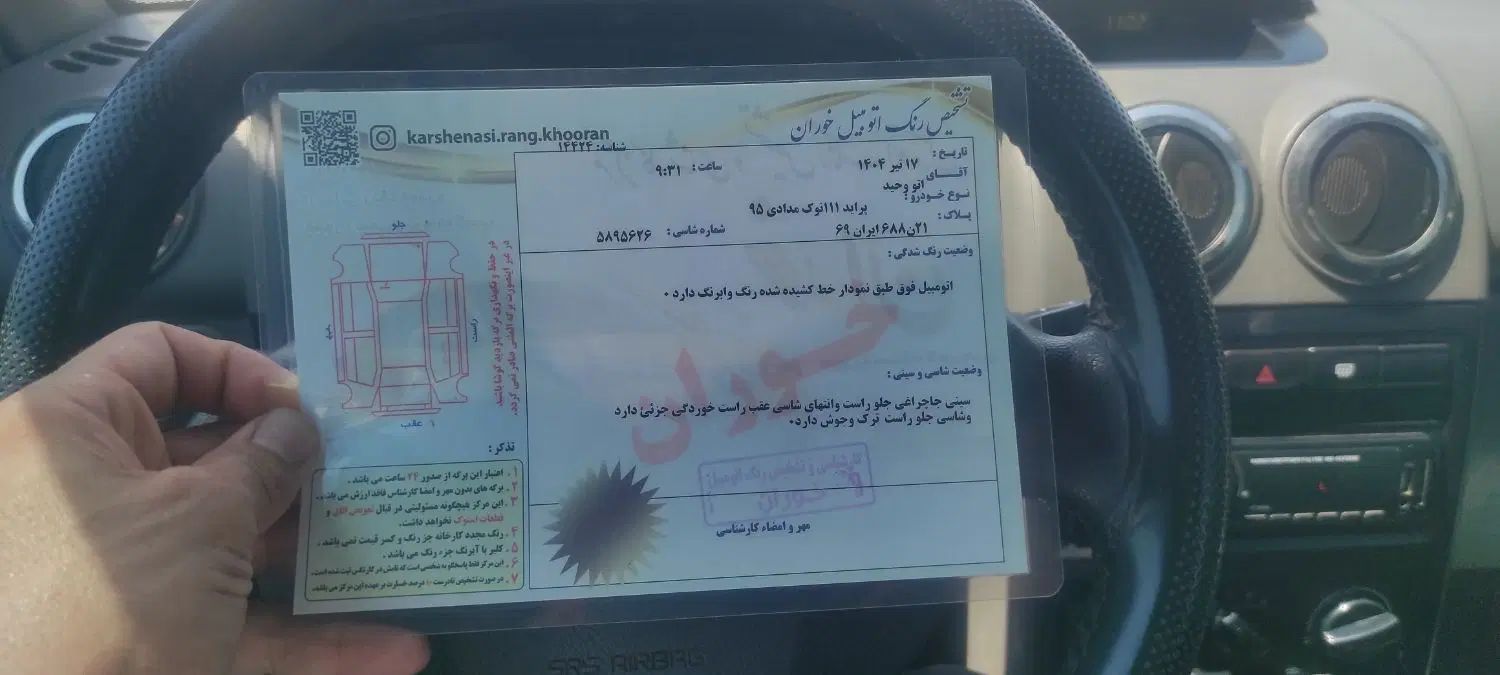 تشخیص رنگ اتومبیل خوران
karshenasi.rang.khooran
شناسه: ۱۴۴۲۴
تاریخ: ۱۷ تیر ۱۴۰۴ ساعت: ۹:۳۱
آقای اتو وحید
نوع خودرو: پراید ۱۱۱نوک مدادی ۹۵
پلاک: ۲۱ن۶۸۸ ایران ۶۹ شماره شاسی: ۵۸۹۵۶۲۶
وضعیت رنگ شدگی:
اتومبیل فوق طبق نمودار خط کشیده شده رنگ وابرنگ دارد ۰
خوران
وضعیت شاسی و سینی:
سینی جاچراغی جلو راست وانتهای شاسی عقب راست خوردگی جزئئ دارد
وشاسی جلو راست ترک وجوش دارد۰
کارشناسی و تشخیص رنگ اتومبیل
خوران
مهر و امضاء کارشناسی
جلو
راست
عقب
در حفظ و نگهداری برگه بازدید کوشا باشید
در غیر اینصورت برگه المثنی صادر نمی گردد.
تذکر:
۱. اعتبار این برگه از صدور ۲۴ ساعت می باشد.
۲. برگه های بدون مهر و امضا کارشناس فاقد ارزش می باشد.
۳. این مرکز هیچگونه مسئولیتی در قبال تعویض اتاق و
قطعات استوک نخواهد داشت.
۴. رنگ مجدد کارخانه جز رنگ و کسر قیمت نمی باشد.
۵. کلیر یا آبرنگ جزء رنگ می باشد.
۶. این مرکز فقط پاسخگو به شخصی است که نامش در کارتکس ثبت شده است.
۷. در صورت تشخیص نادرست ۱۰ درصد خسارت بر عهده این مرکز می باشد.
SRS AIRBAG